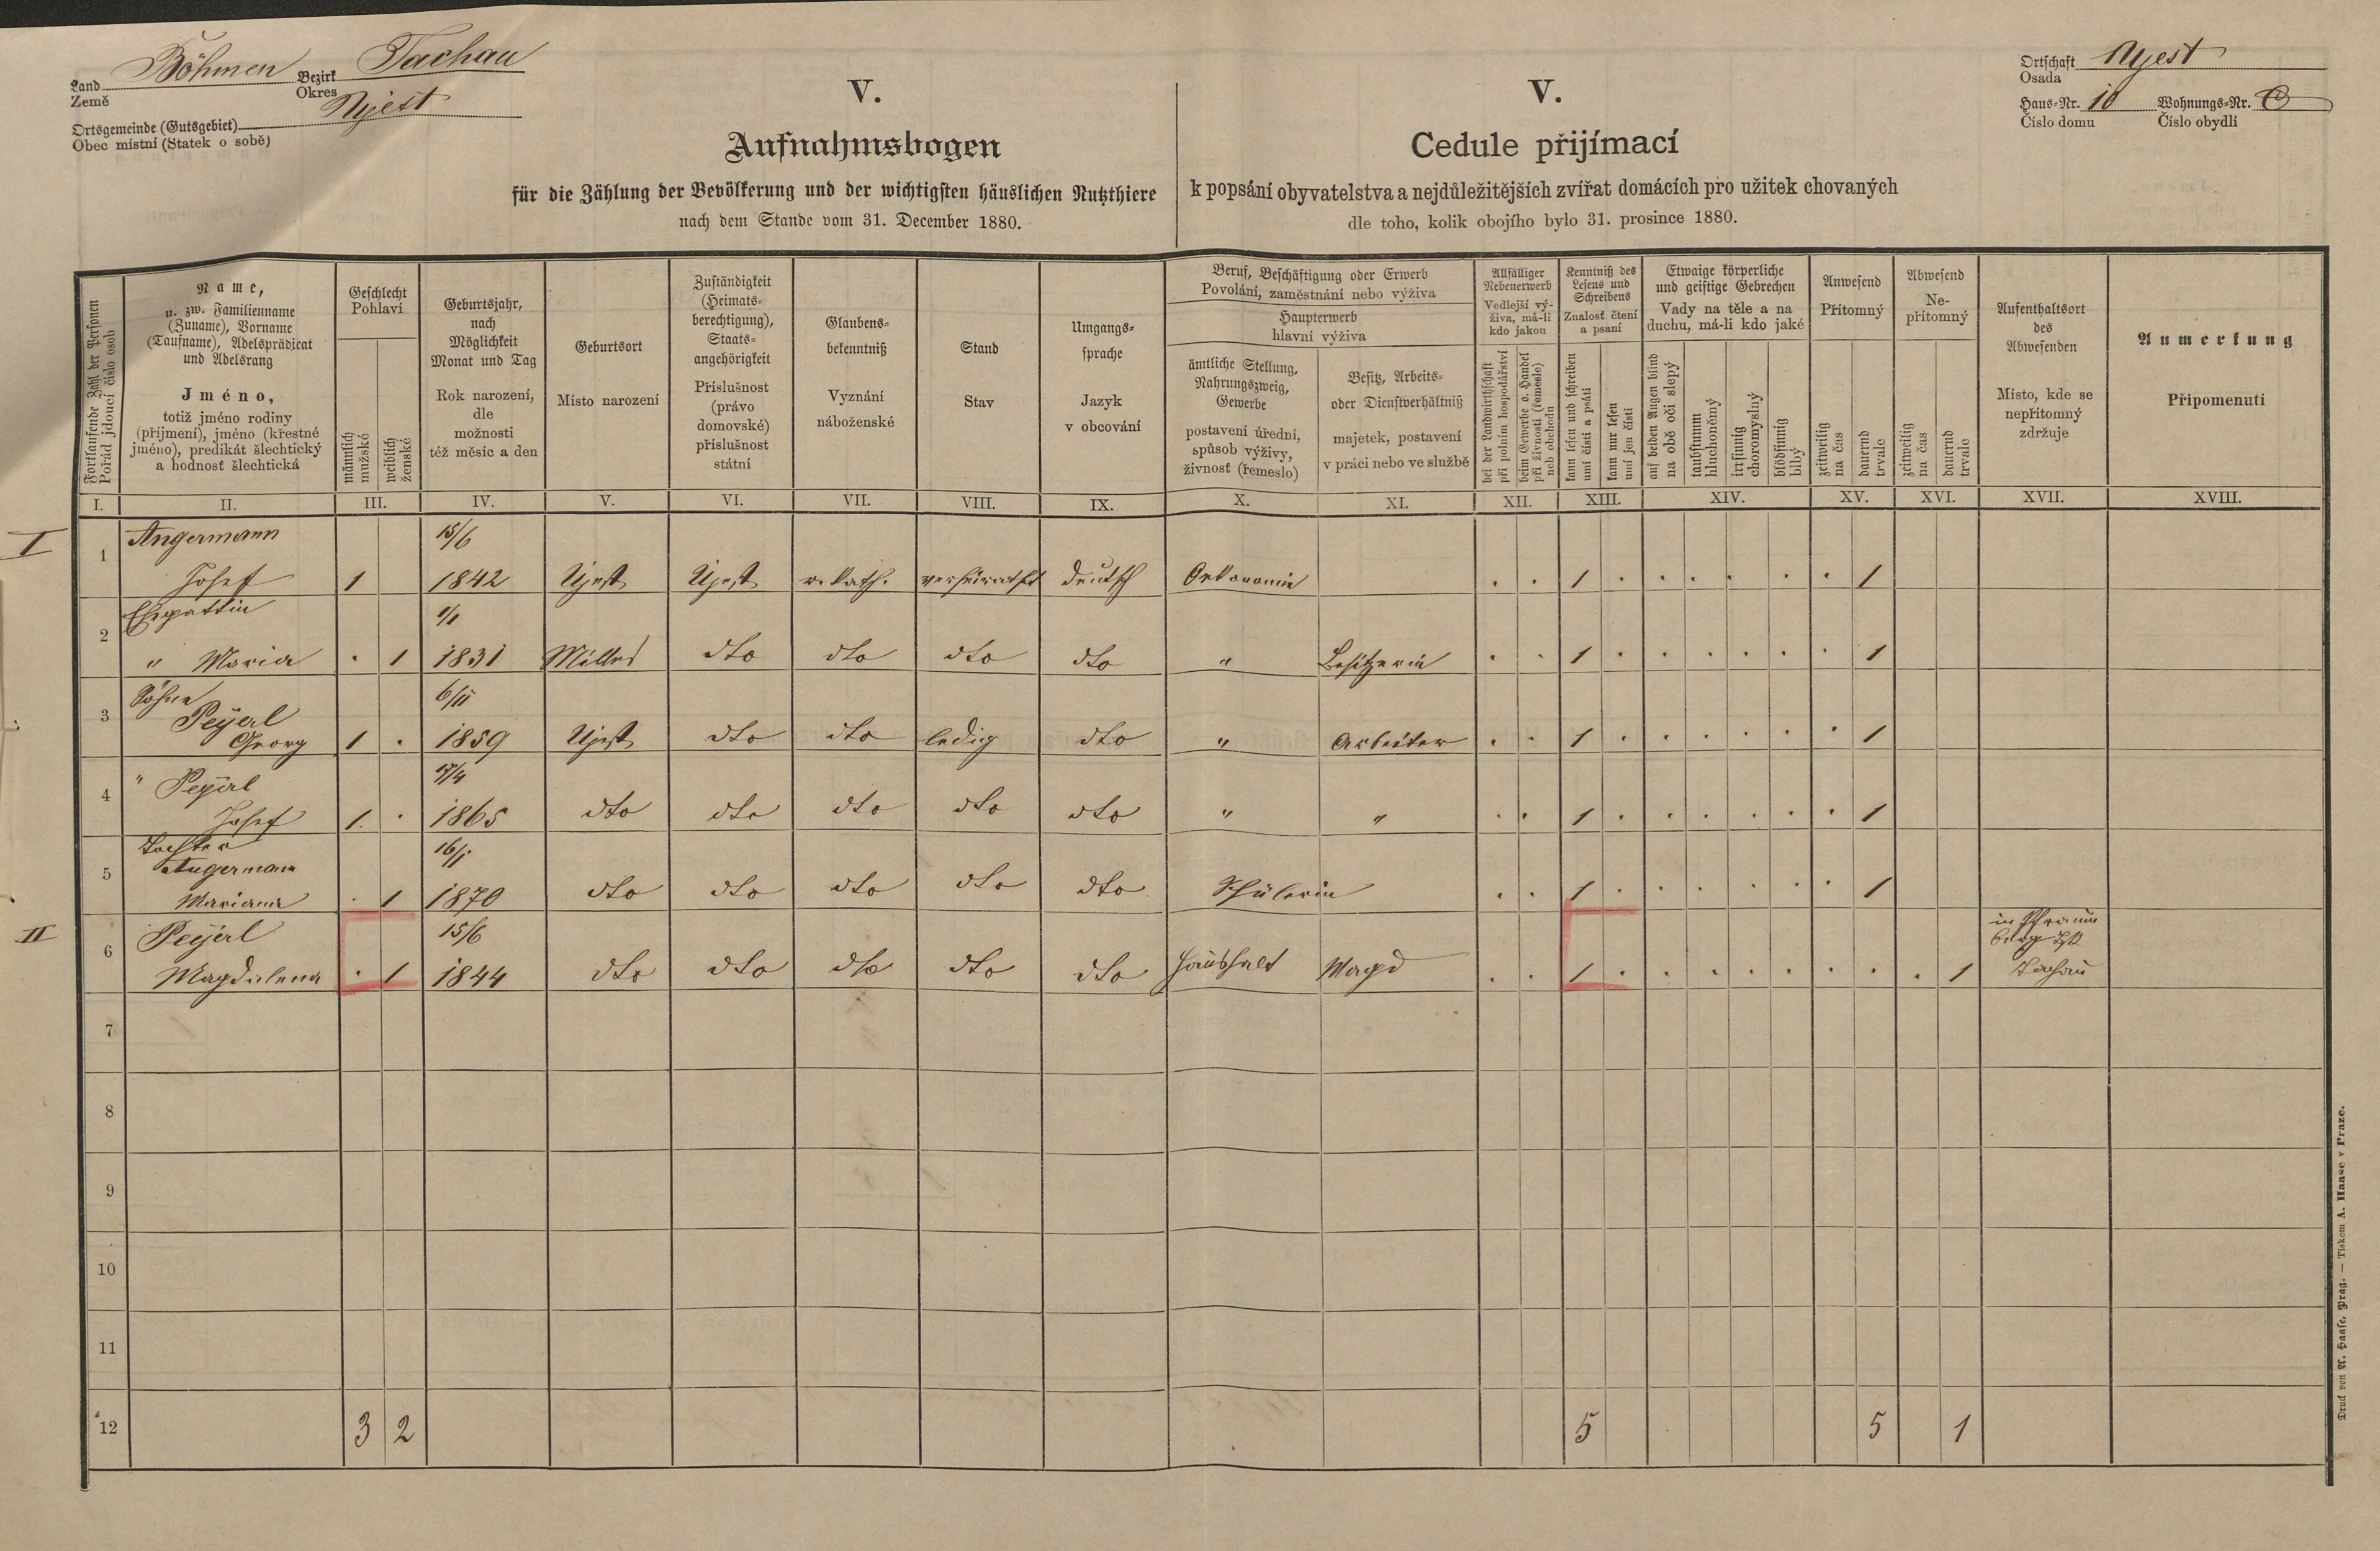 Land Böhmen Bezirk Tachau
Země Okres
Ortsgemeinde (Gutsgebiet) Ujest
Obec místní (Statek o sobě)
V.
Aufnahmsbogen
für die Zählung der Bevölkerung und der wichtigsten häuslichen Nutzthiere
nach dem Stande vom 31. December 1880.
V.
Cedule přijímací
k popsání obyvatelstva a nejdůležitějších zvířat domácích pro užitek chovaných
dle toho, kolik obojího bylo 31. prosince 1880.
Ortschaft Ujest
Osada
Haus-Nr. 10 Wohnungs-Nr.
Číslo domu Číslo obydlí
Fortlaufende Zahl der Personen
Pořád jdoucí číslo osob
Name,
u. zw. Familienname
(Zuname), Vorname
(Taufname), Adelsprädicat
und Adelsrang
Jméno,
totiž jméno rodiny
(příjmení), jméno (křestné
jméno), predikát šlechtický
a hodnosť šlechtická
Geschlecht
Pohlaví
männlich
mužské
weiblich
ženské
Geburtsjahr,
nach
Möglichkeit
Monat und Tag
Rok narození,
dle
možnosti
též měsíc a den
Geburtsort
Místo narození
Zuständigkeit
(Heimats-
berechtigung),
Staats-
angehörigkeit
Příslušnost
(právo
domovské)
příslušnost
státní
Glaubens-
bekenntniß
Vyznání
náboženské
Stand
Stav
Umgangs-
sprache
Jazyk
v obcování
Beruf, Beschäftigung oder Erwerb
Povolání, zaměstnání nebo výživa
Haupterwerb
hlavní výživa
ämtliche Stellung,
Nahrungszweig,
Gewerbe
postavení úřední,
spůsob výživy,
živnosť (řemeslo)
Besitz, Arbeits-
oder Dienstverhältniß
majetek, postavení
v práci nebo ve službě
Allfälliger
Nebenerwerb
Vedlejší vý-
živa, má-li
kdo jakou
bei der Landwirthschaft
při polním hospodářství
beim Gewerbe o. Handel
při živnosti (řemeslo)
neb obchodu
Kenntniß des
Lesens und
Schreibens
Znalosť čtení
a psaní
kann lesen und schreiben
umí čísti a psáti
kann nur lesen
umí jen čísti
Etwaige körperliche
und geistige Gebrechen
Vady na těle a na
duchu, má-li kdo jaké
auf beiden Augen blind
na obě oči slepý
taubstumm
hluchoněmý
irrsinnig
choromyslný
blödsinnig
blbý
Anwesend
Přítomný
zeitweilig
na čas
dauernd
trvale
Abwesend
Ne-
přítomný
zeitweilig
na čas
dauernd
trvale
Aufenthaltsort
des
Abwesenden
Místo, kde se
nepřítomný
zdržuje
Anmerkung
Připomenutí
I. II. III. IV. V. VI. VII. VIII. IX. X. XI. XII. XIII. XIV. XV. XVI. XVII. XVIII.
I
1 Angermann 15/6
Josef 1 1842 Ujest Ujest r. kath. verheirathet deutsch Oekonomie . . 1 . . . . . . 1
2 Ehegattin 1/1
" Maria . 1 1831 dto dto dto dto " Besitzerin . . 1 . . . . . . 1
3 Söhne 6/11
Peÿerl
Georg 1 . 1859 Ujest dto dto ledig dto " Arbeiter . . 1 . . . . . . 1
4 " Peÿerl 17/4
Josef 1. . 1865 dto dto dto dto dto " " . . 1 . . . . . . 1
5 Tochter 16/1
Angermann
Mariana . 1 1870 dto dto dto dto dto Schülerin . . 1 . . . . . . 1
II
6 Peÿerl 15/6 in Pfraum
berg Bzk
Magdalena . 1 1844 dto dto dto dto dto Haushalt Magd . . 1 . . . . . . . . 1 Tachau
7
8
9
10
11
12 3 2 5 5 1
Druck von A. Haase, Prag. — Tiskem A. Haase v Praze.